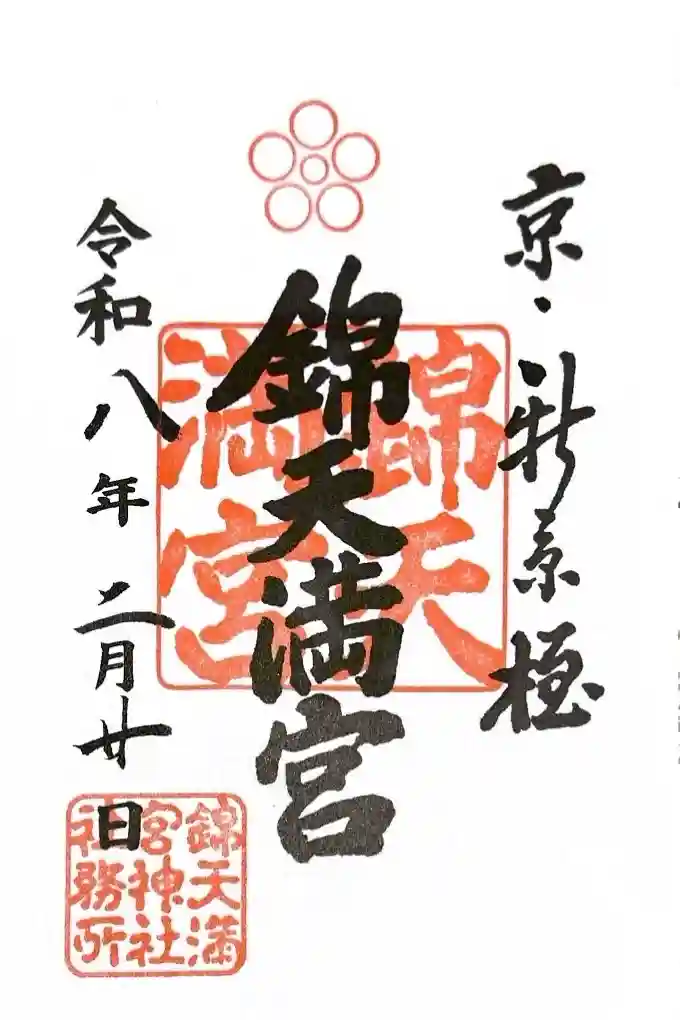 京・新京極
錦天満宮
令和八年二月廿日
錦天
満宮
錦天満
宮神社
社務所